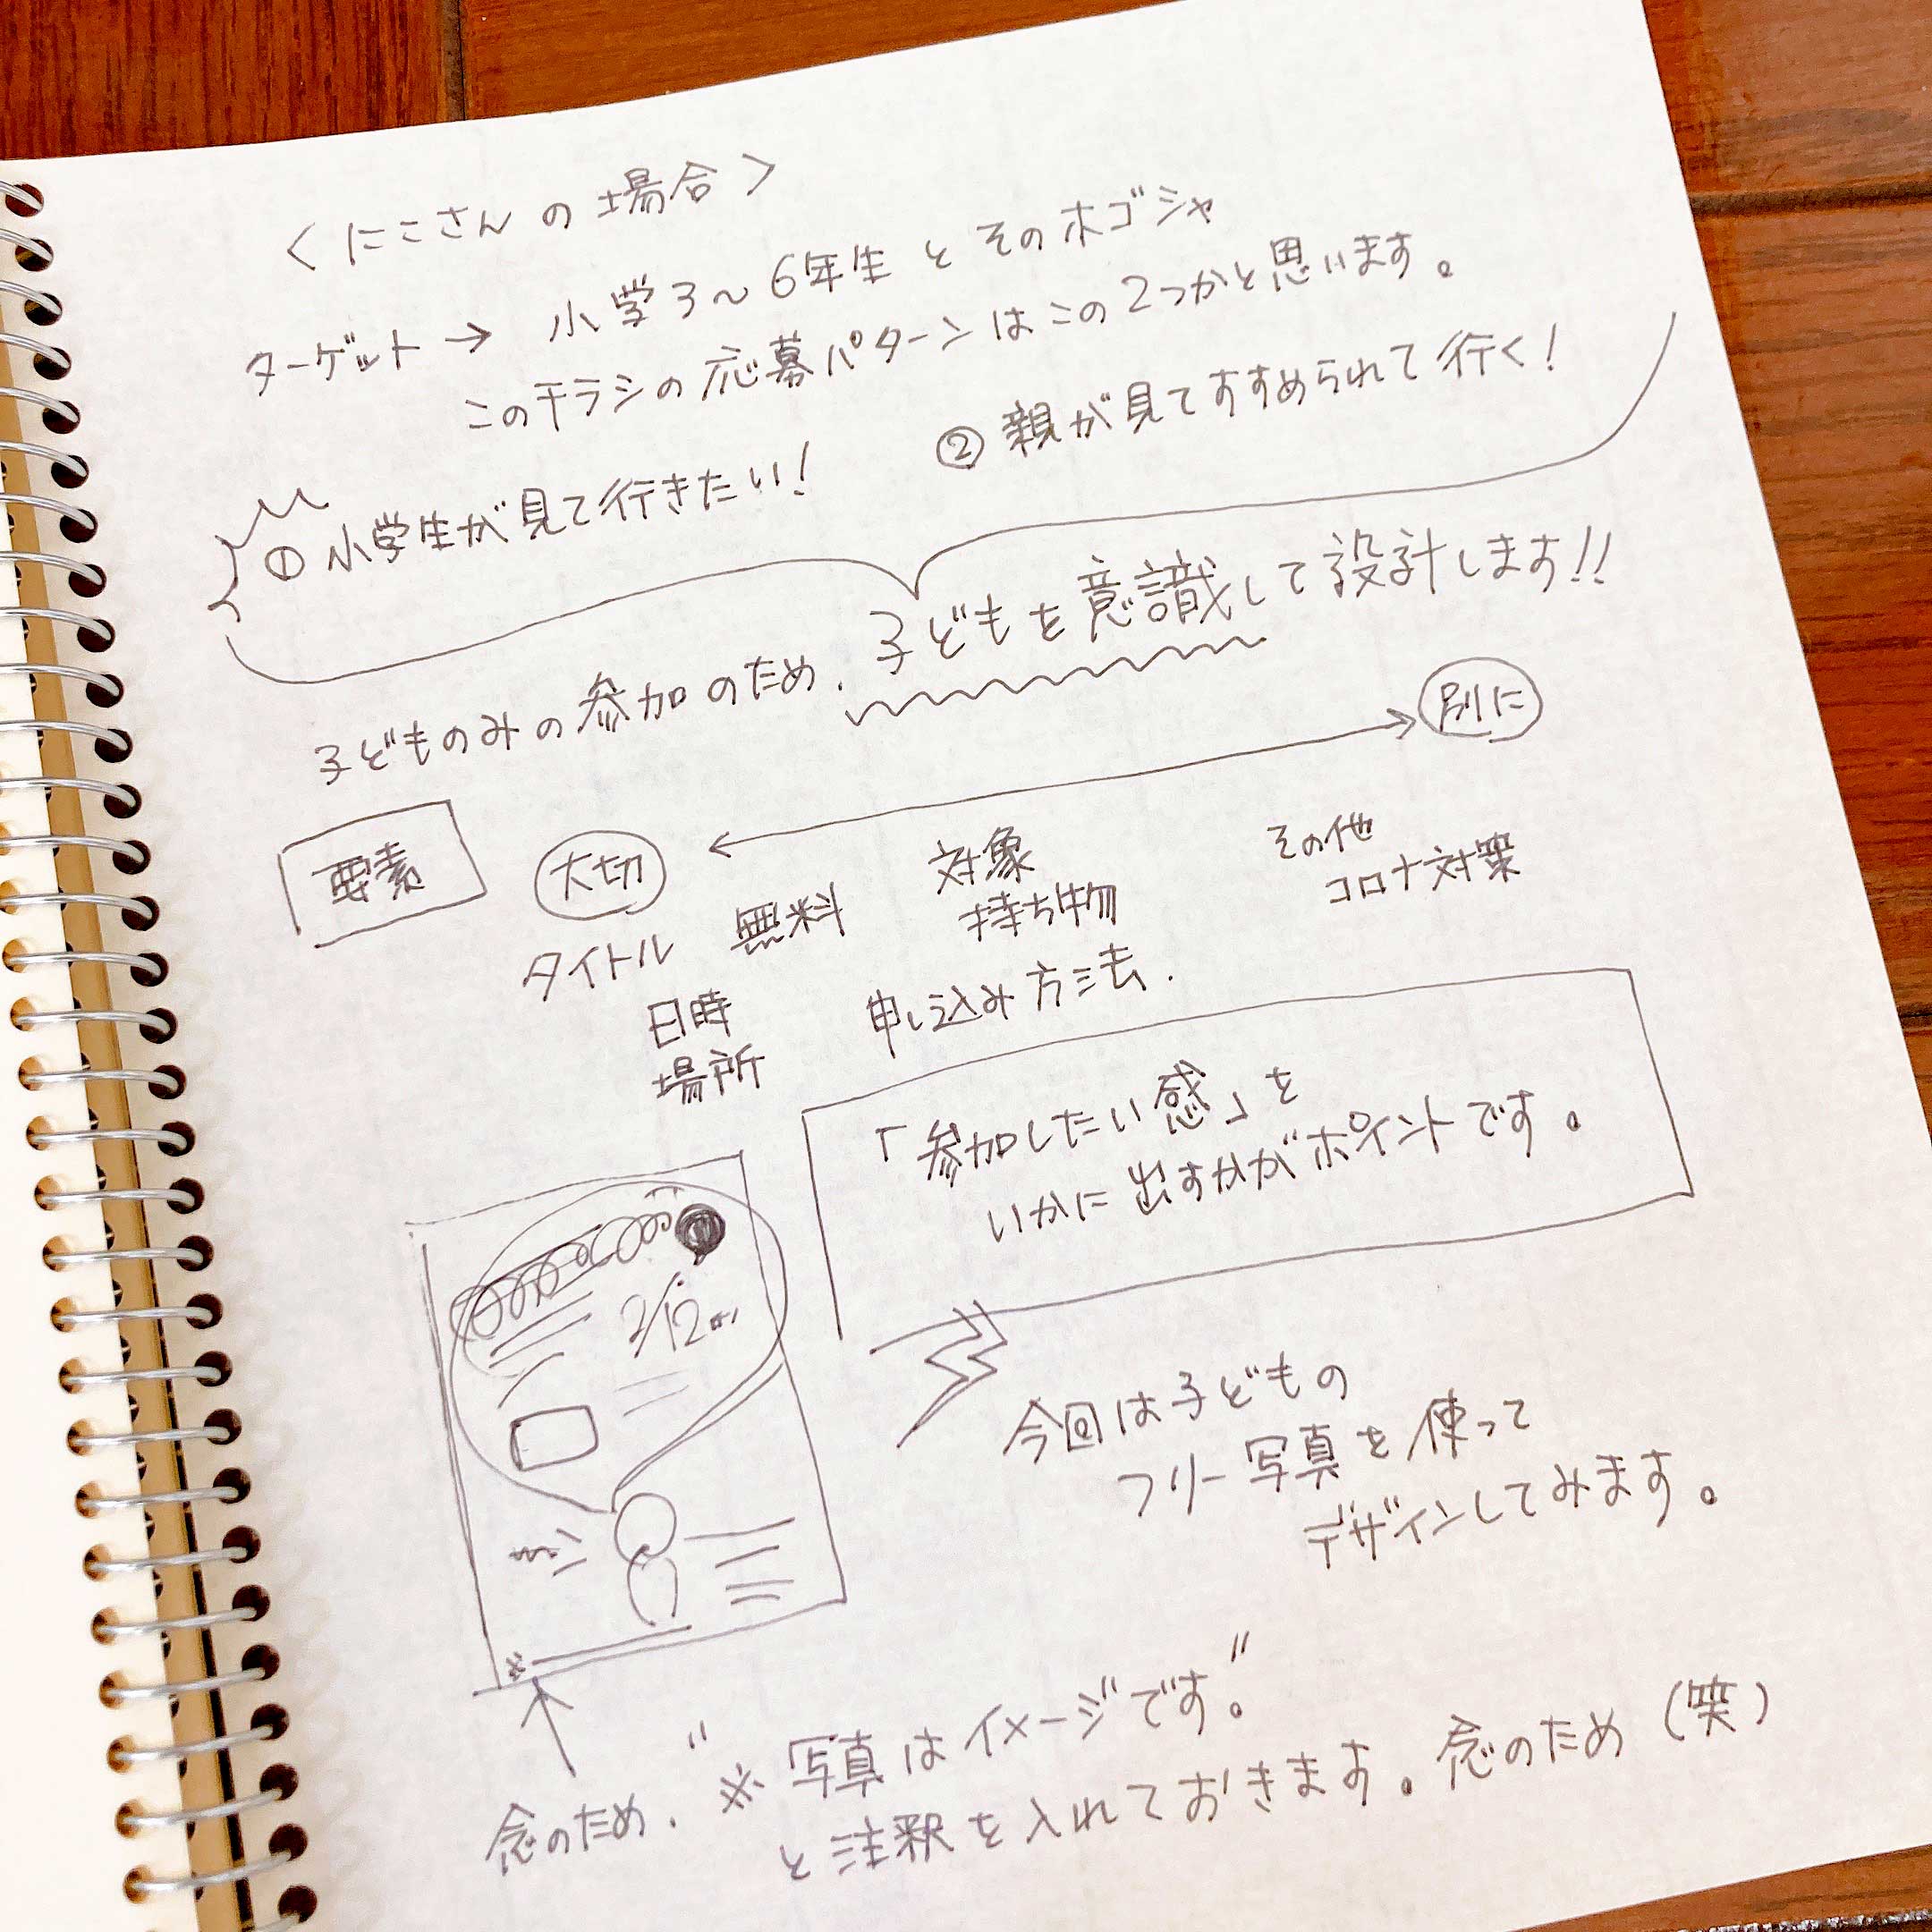 ＜にこさんの場合＞
ターゲット→ 小学3〜6年生とそのホゴシャ
このチラシの応募パターンはこの2つかと思います。
①小学生が見て行きたい！ ②親が見てすすめられて行く！
子どものみの参加のため、子どもを意識して設計します!!
別に
要素 大切 対象 その他
タイトル 無料 持ち物 コロナ対策
日時 申し込み方法.
場所
「参加したい感」を
いかに出すかがポイントです。
2/12
今回は子どもの
フリー写真を使って
デザインしてみます。
※
念のため、"※写真はイメージです。"
と注釈を入れておきます。念のため(笑)